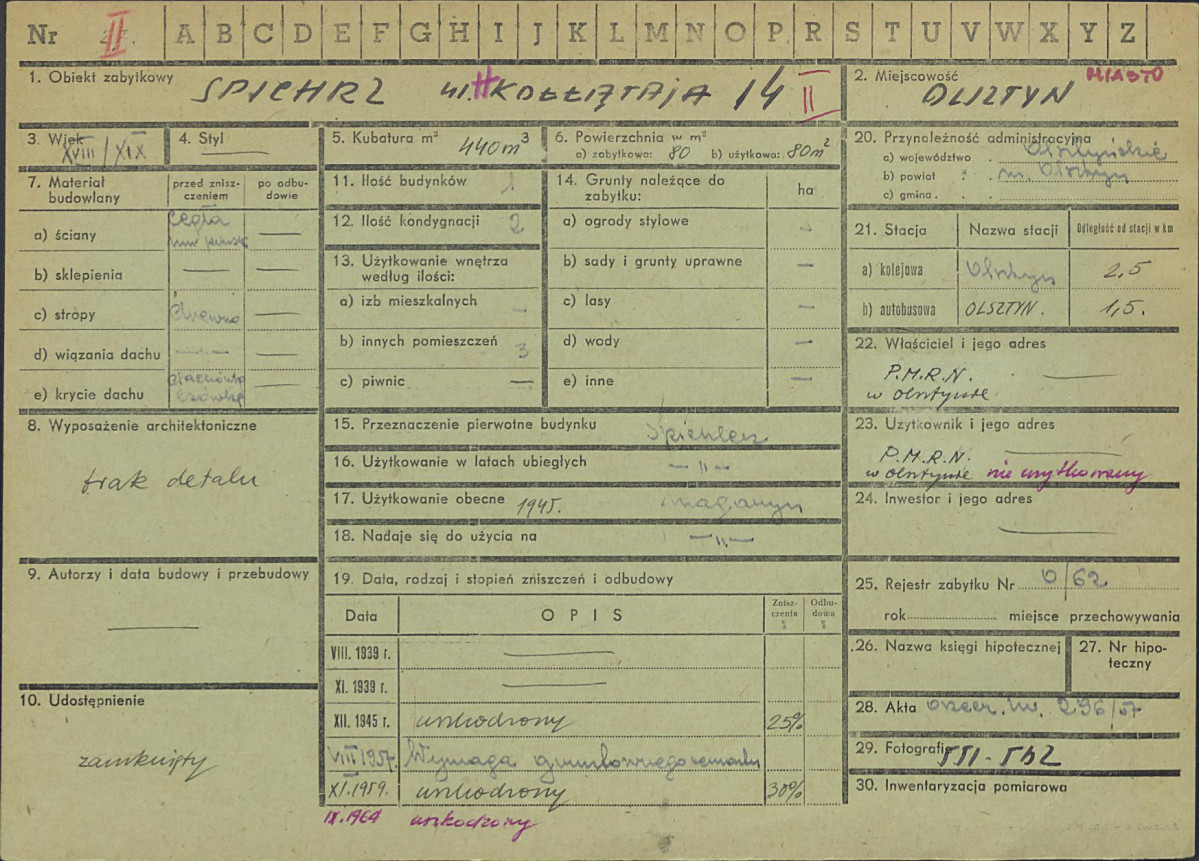 Nr II A B C D E F G H I J K L M N O P R S T U V W X Y Z
1. Obiekt zabytkowy
SPICHRZ ul. H. KOŁŁĄTAJA 14 II
2. Miejscowość MIASTO
OLSZTYN
3. Wiek
XVIII/XIX
4. Styl —
5. Kubatura m³ 440 m³
6. Powierzchnia w m²
a) zabytkowa: 80 b) użytkowa: 80m²
7. Materiał budowlany
przed zniszczeniem
po odbudowie
a) ściany Cegła —
b) sklepienia — —
c) stropy drewno —
d) wiązania dachu —„— —
e) krycie dachu —
8. Wyposażenie architektoniczne
brak detalu
9. Autorzy i data budowy i przebudowy
—
10. Udostępnienie
zamknięty
11. Ilość budynków 1
12. Ilość kondygnacji 2
13. Użytkowanie wnętrza
według ilości:
a) izb mieszkalnych -
b) innych pomieszczeń 3
c) piwnic —
14. Grunty należące do
zabytku:
ha
a) ogrody stylowe -
b) sady i grunty uprawne —
c) lasy —
d) wody —
e) inne —
15. Przeznaczenie pierwotne budynku Spichlerz
16. Użytkowanie w latach ubiegłych —„—
17. Użytkowanie obecne 1945. magazyn
18. Nadaje się do użycia na —„—
19. Data, rodzaj i stopień zniszczeń i odbudowy
Data OPIS Zniszczenia % Odbudowa %
VIII. 1939 r. —
XI. 1939 r. —
XII. 1945 r. uszkodzony 25%
VIII 1957. Wymaga gruntownego remontu
XI. 1959. uszkodzony 30%
IX. 1964 uszkodzony
20. Przynależność administracyjna
a) województwo Olsztyńskie
b) powiat m. Olsztyn
c) gmina
21. Stacja Nazwa stacji Odległość od stacji w km
a) kolejowa Olsztyn 2,5
b) autobusowa OLSZTYN. 1,5.
22. Właściciel i jego adres
P.M.R.N. —
w Olsztynie
23. Użytkownik i jego adres
P.M.R.N. —
w Olsztynie nie użytkowany
24. Inwestor i jego adres
—
25. Rejestr zabytku Nr 0/62
rok miejsce przechowywania
26. Nazwa księgi hipotecznej
27. Nr hipoteczny
28. Akta 296/57
29. Fotografie
30. Inwentaryzacja pomiarowa